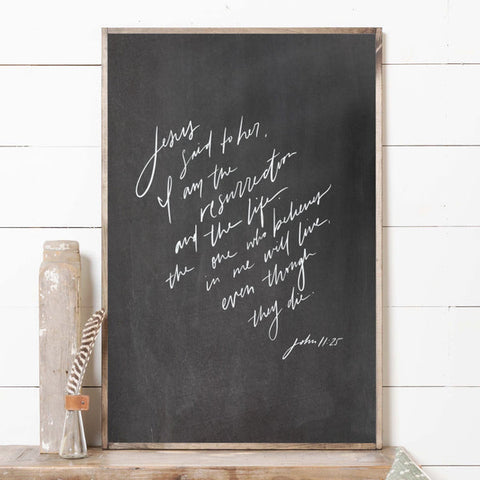 Jesus
said to her,
I am the
resurrection
and the life
the one who believes
in me will live,
even though
they die.
John 11:25